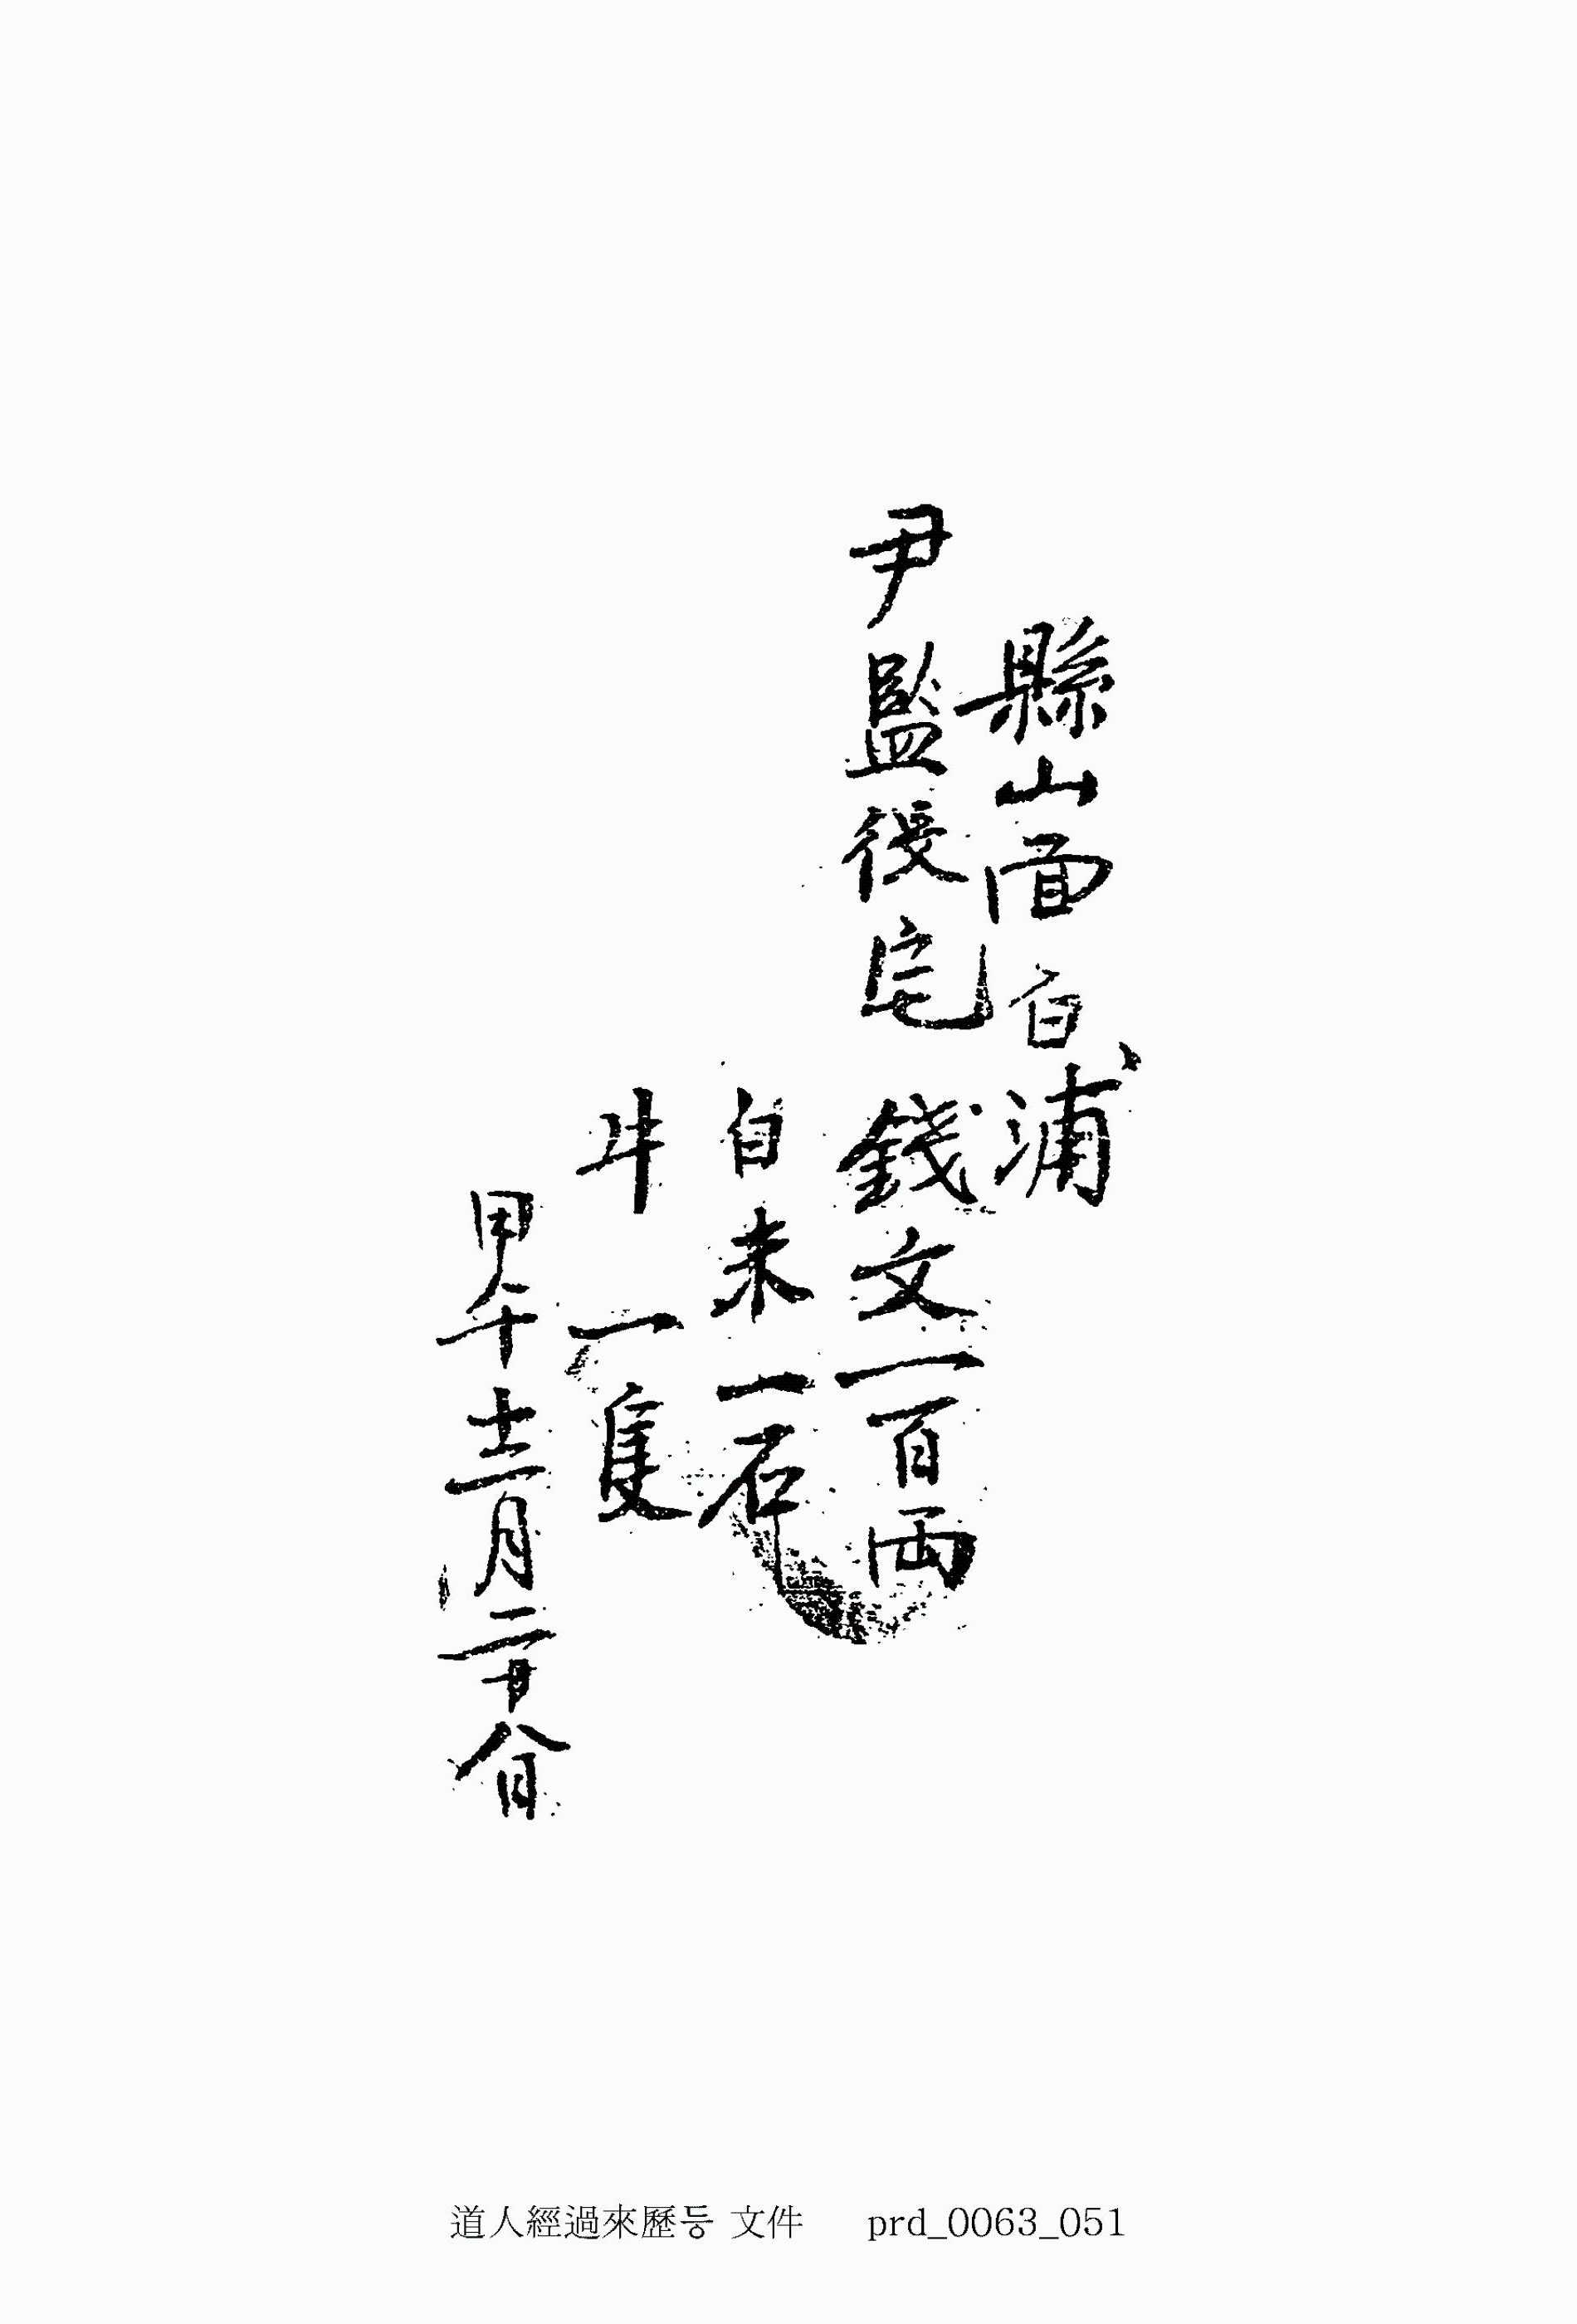 縣山面 白浦
尹監役宅 錢文一百兩
白米一石
牛 一隻
甲午十二月二十八日
道人經過來歷등 文件 prd_0063_051